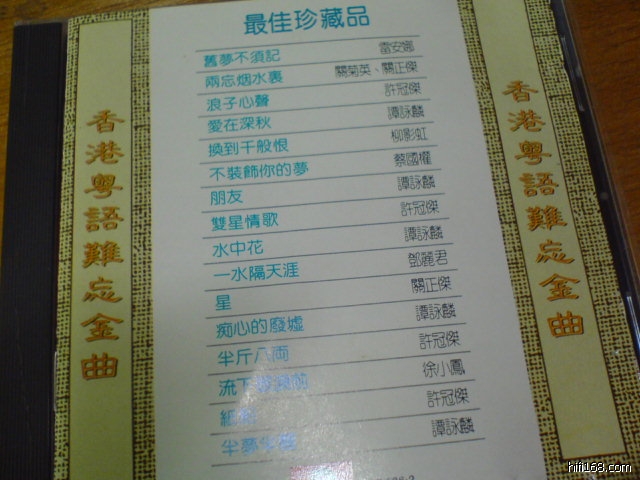 最佳珍藏品
香港粵語難忘金曲
舊夢不須記 雷安娜
兩忘烟水裏 關菊英、關正傑
浪子心聲 許冠傑
愛在深秋 譚詠麟
換到千般恨 柳影虹
不裝飾你的夢 蔡國權
朋友 譚詠麟
雙星情歌 許冠傑
水中花 譚詠麟
一水隔天涯 鄧麗君
星 關正傑
痴心的廢墟 譚詠麟
半斤八両 許冠傑
流下 徐小鳳
許冠傑
半夢半醒 譚詠麟
香港粵語難忘金曲
hifi168.com